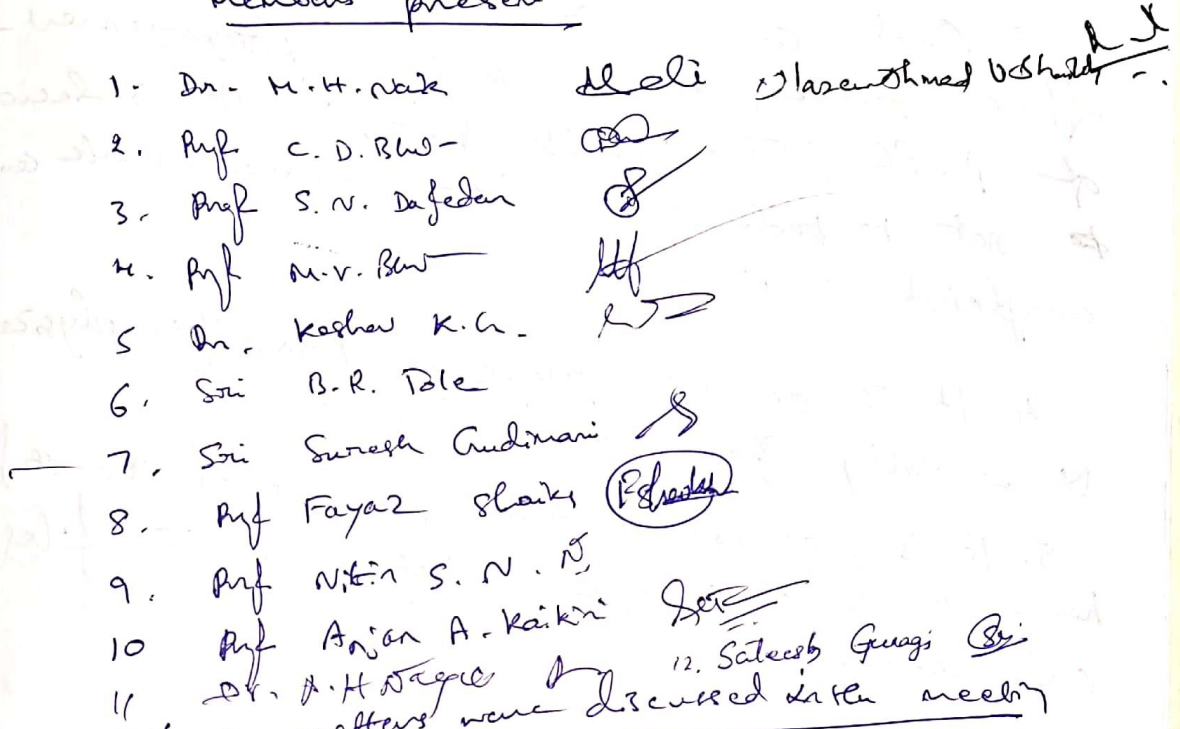 Members present
1. Dr. M.H. Naik
2. Prof C. D. Bhat
3. Prof S. N. Dafedar
4. Prof M.V. Bhat
5 Dr. Keshav K.G.
6. Sri B.R. Tole
7. Sri Suresh Gudimani
8. Prof Fayaz Shaikh
9. Prof Nitin S. N.
10 Prof Anjan A. Kaikini
11 Dr. A.H
12. Sateesh Guragi
were discussed in the meeting